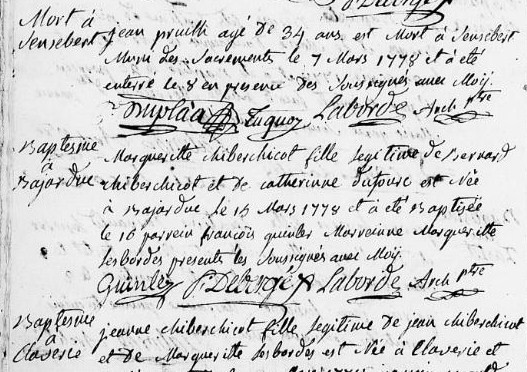 Mort à
Sensebert
jean pruilh agé de 34 ans est Mort à Sensebert
Muni des Sacrements le 7 Mars 1778 et à été
enterré le 8 en presence des Soussignés avec Moÿ
Laborde Arch ptre
Baptesme
à
Bajordue
Margueritte chiberchicot fille legitime de Bernard
chiberchicot et de catherinne dufourc est Née
à Bajordue le 15 Mars 1778 et à été Baptisée
le 16 parrein françois quinler Marrainne Margueritte
lesbordes presents les Soussignés avec Moÿ
Quinlez P. Debergé Laborde Arch ptre
Baptesme
à
Claverie
jeanne chiberchicot fille legitime de jean chiberchicot
et de Margueritte lesbordes est Née à Claverie et